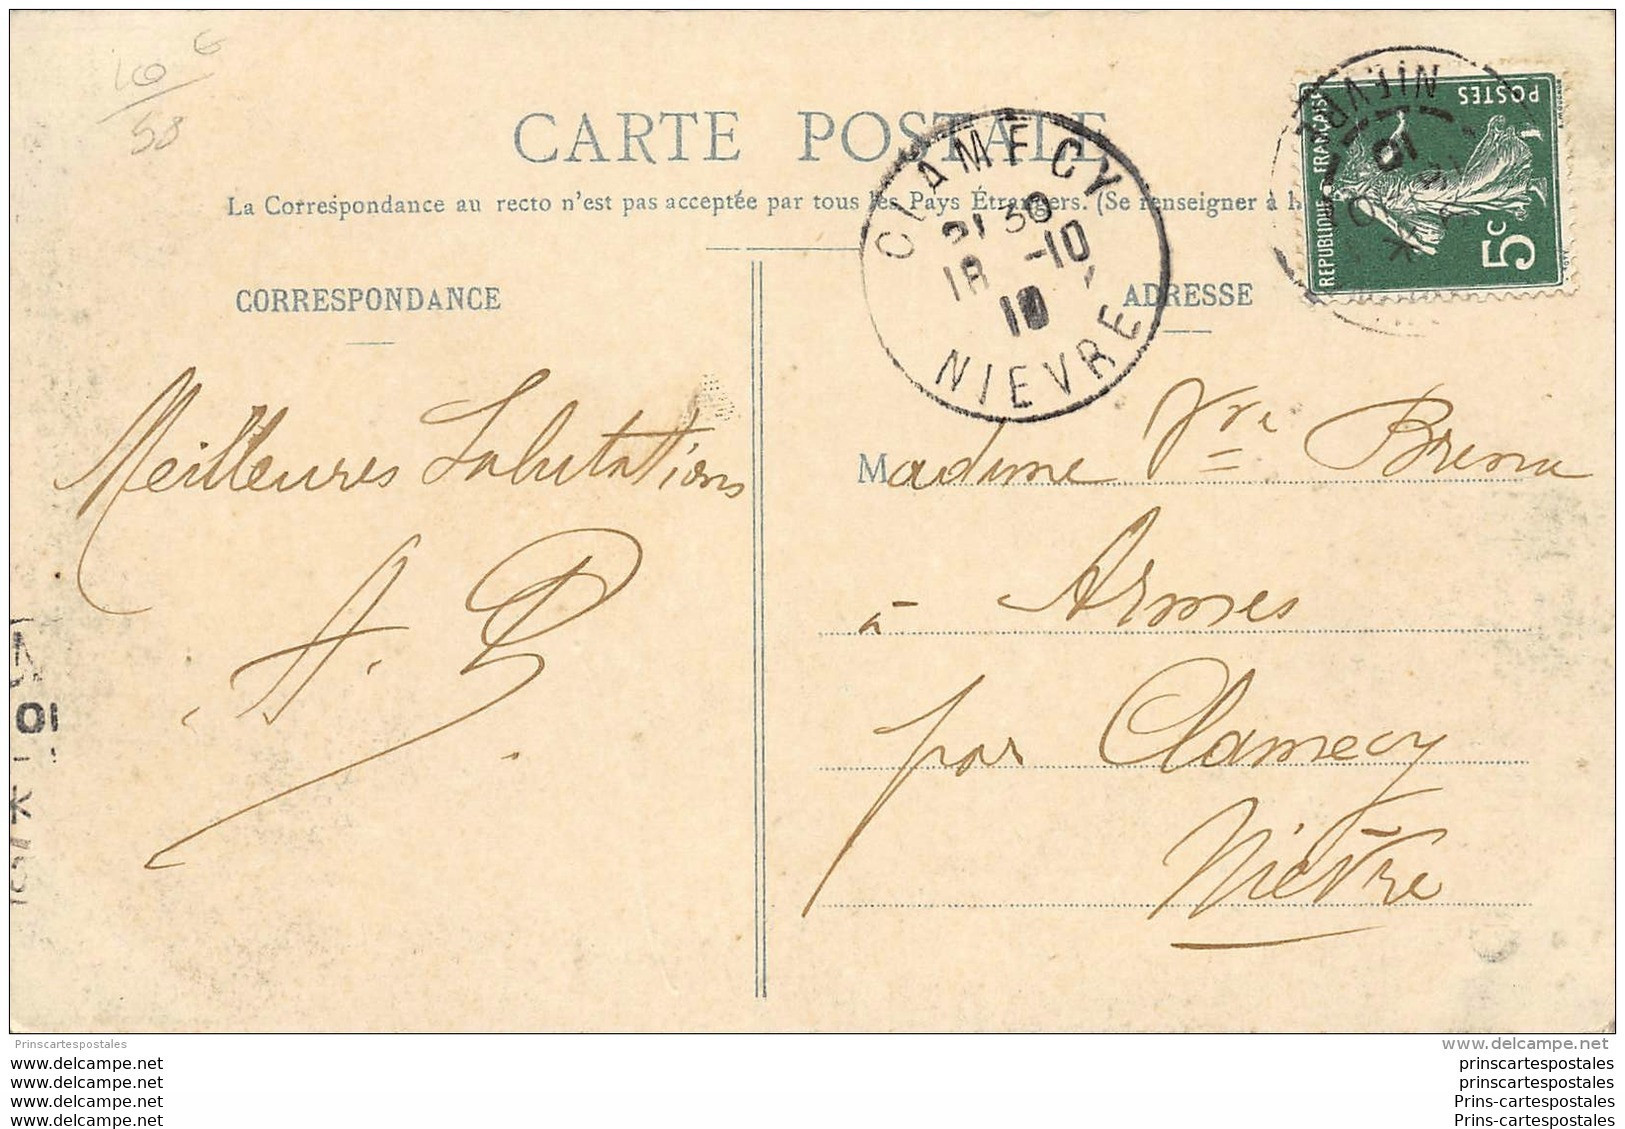 10 €
58
CARTE POSTALE
La Correspondance au recto n'est pas acceptée par tous les Pays Étrangers. (Se renseigner à
CORRESPONDANCE
ADRESSE
CLAMECY
21 30
18 -10
10
NIEVRE
NIEVRE
10
POSTES
REPUBLIQUE FRANÇAISE
5c
Meilleures Salutations
A. B.
Madame Vve
à Armes
par Clamecy
Nièvre
10
Prinscartespostales
www.delcampe.net
www.delcampe.net
prinscartespostales
www.delcampe.net
prinscartespostales
www.delcampe.net
Prins-cartespostales
www.delcampe.net
Prins-cartespostales